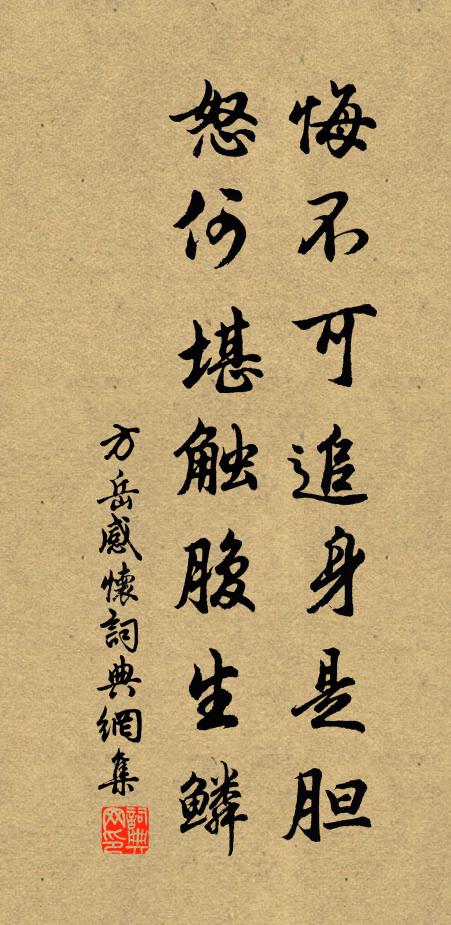 悔不可追身是胆
怒何堪触腹生鳞
方岳感懷詞典網集
詞典网印